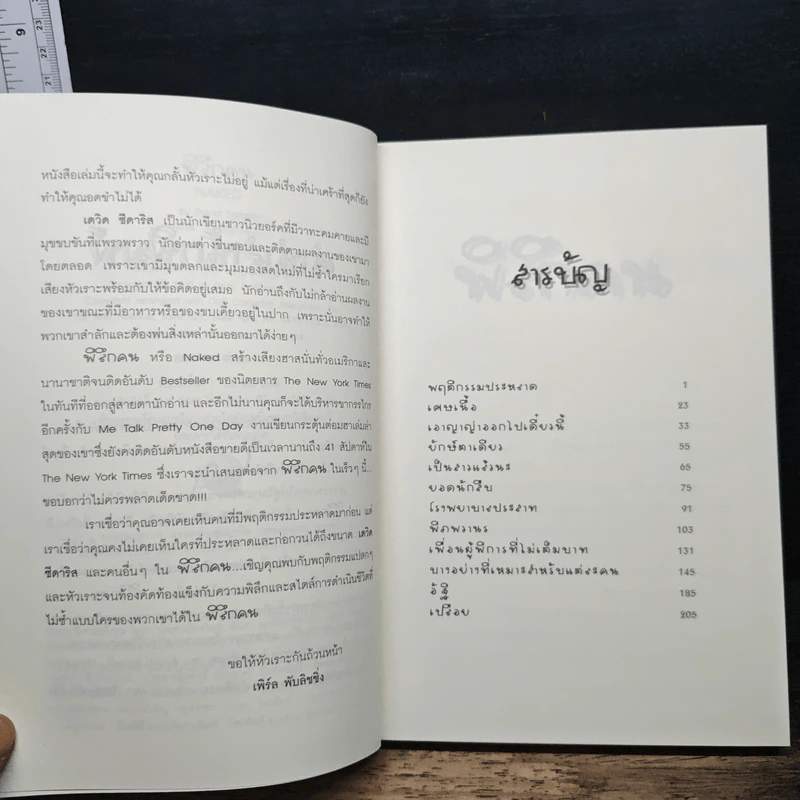 9
23
22
21
หนังสือเล่มนี้จะทำให้คุณกลั้นหัวเราะไม่อยู่ แม้แต่เรื่องที่น่าเศร้าที่สุดก็ยัง
ทำให้คุณอดขำไม่ได้
เดวิด ซีดาริส เป็นนักเขียนชาวนิวยอร์คที่มีวาทะคมคายและมี
มุขขบขันที่แพรวพราว นักอ่านต่างชื่นชอบและติดตามผลงานของเขามา
โดยตลอด เพราะเขามีมุขตลกและมุมมองสดใหม่ที่ไม่ซ้ำใครมาเรียก
เสียงหัวเราะพร้อมกับให้ข้อคิดอยู่เสมอ นักอ่านถึงกับไม่กล้าอ่านผลงาน
ของเขาขณะที่มีอาหารหรือของขบเคี้ยวอยู่ในปาก เพราะนั่นอาจทำให้
พวกเขาสำลักและต้องพ่นสิ่งเหล่านั้นออกมาได้ง่ายๆ
พิรึกคน หรือ Naked สร้างเสียงฮาสนั่นทั่วอเมริกาและ
นานาชาติจนติดอันดับ Bestseller ของนิตยสาร The New York Times
ในทันทีที่ออกสู่สายตานักอ่าน และอีกไม่นานคุณก็จะได้บริหารขากรรไกร
อีกครั้งกับ Me Talk Pretty One Day งานเขียนกระตุ้นต่อมฮาเล่มล่า
สุดของเขาซึ่งยังคงติดอันดับหนังสือขายดีเป็นเวลานานถึง 41 สัปดาห์ใน
The New York Times ซึ่งเราจะนำเสนอต่อจาก พิรึกคน ในเร็วๆ นี้...
ขอบอกว่าไม่ควรพลาดเด็ดขาด!!!
เราเชื่อว่าคุณอาจเคยเห็นคนที่มีพฤติกรรมประหลาดมาก่อน แต่
เราเชื่อว่าคุณคงไม่เคยเห็นใครที่ประหลาดและก่อกวนได้ถึงขนาด เดวิด
ซีดาริส และคนอื่นๆ ใน พิรึกคน...เชิญคุณพบกับพฤติกรรมแปลกๆ
และหัวเราะจนท้องคัดท้องแข็งกับความพิลึกและสไตล์การดำเนินชีวิตที่
ไม่ซ้ำแบบใครของพวกเขาได้ใน พิรึกคน
ขอให้หัวเราะกันถ้วนหน้า
เพิร์ล พับลิชชิ่ง
สารบัญ
พฤติกรรมประหลาด 1
เศษเนื้อ 23
เอาญาญ่าออกไปเดี๋ยวนี้ 33
ยักษ์ตาเดียว 55
เป็นสาวแล้วนะ 65
ยอดนักสืบ 75
โรงพยาบาลประสาท 91
พิภพวานร 103
เพื่อนผู้พิการที่ไม่เต็มบาท 131
บางอย่างที่เหมาะสำหรับแต่ละคน 145
อัฐิ 185
เปลือย 205